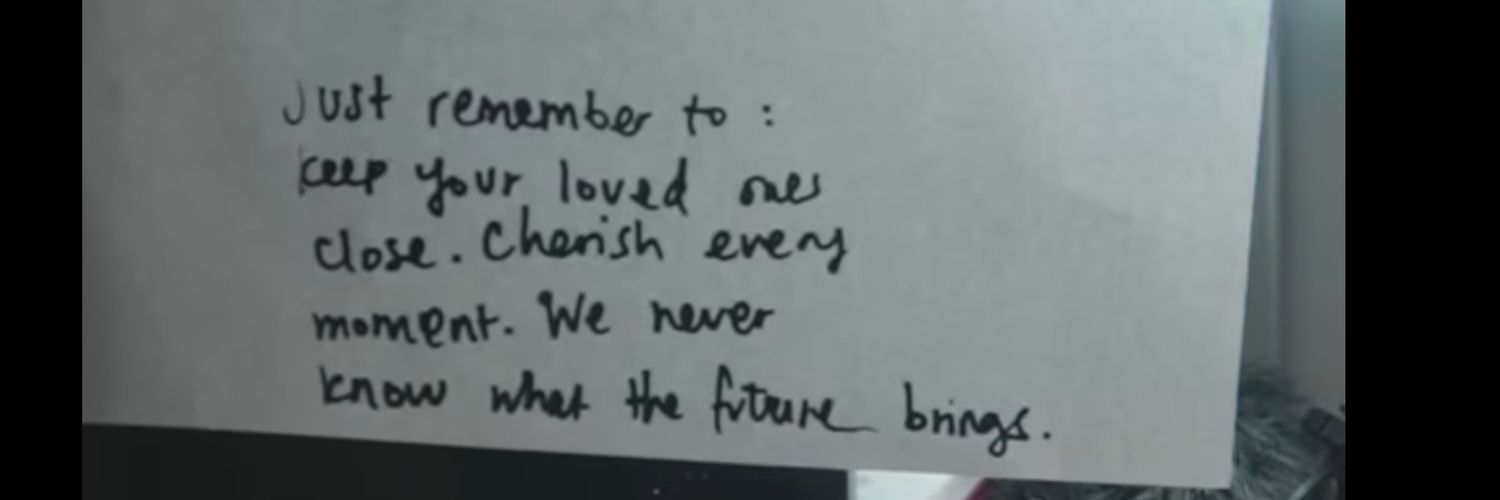 Just remember to :
keep your loved ones
close. Cherish every
moment. We never
know what the future brings.